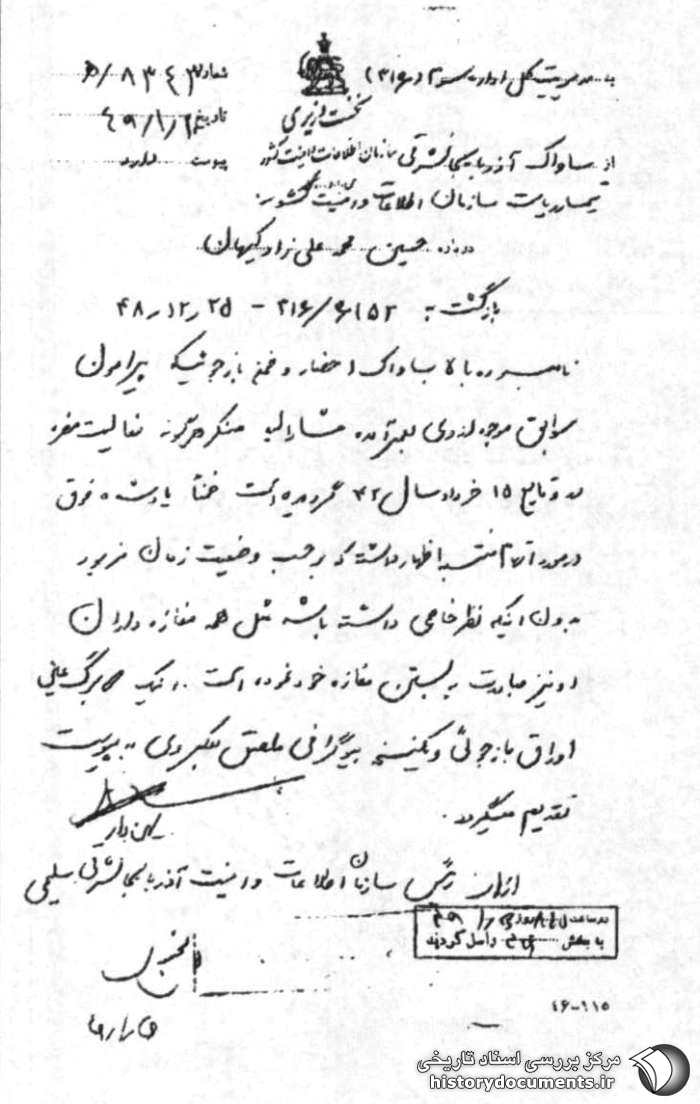 به مدیریت کل اداره سوم (۳۱۶)
شماره ۸۳۴۳/ه‍
نخست وزیری
تاریخ
از ساواک آذربایجانشرقی سازمان اطلاعات و امنیت کشور
پیوست دارد
تیمسار ریاست سازمان اطلاعات و امنیت کشور
درباره حسین محمدعلی نژاد کیهان
بازگشت به ۳۱۶/۶۱۵۲ - ۴۸٫۱۲٫۲۵
نامبرده بالا بساواک احضار و ضمن بازجوئیکه پیرامون
سوابق موجود از وی بعمل آمده مشارالیه منکر هرگونه فعالیت مضره
در وقایع ۱۵ خرداد سال ۴۲ گردیده است ضمناً یادشده فوق
در مورد اتهام منتسبه اظهار داشته که برحسب وضعیت زمان مزبور
بدون اینکه نظر خاصی داشته باشد مثل همه مغازه داران
او نیز مبادرت به بستن مغازه خود نموده است. اینک
اوراق بازجوئی و یکنسخه بیوگرافی ملصق بعکس وی به پیوست
تقدیم میگردد.
از طرف رئیس سازمان اطلاعات و امنیت آذربایجانشرقی سلیمی
در ساعت روز
به بخش واصل گردید
۴۶-۱۱۵
مرکز بررسی اسناد تاریخی
historydocuments.ir